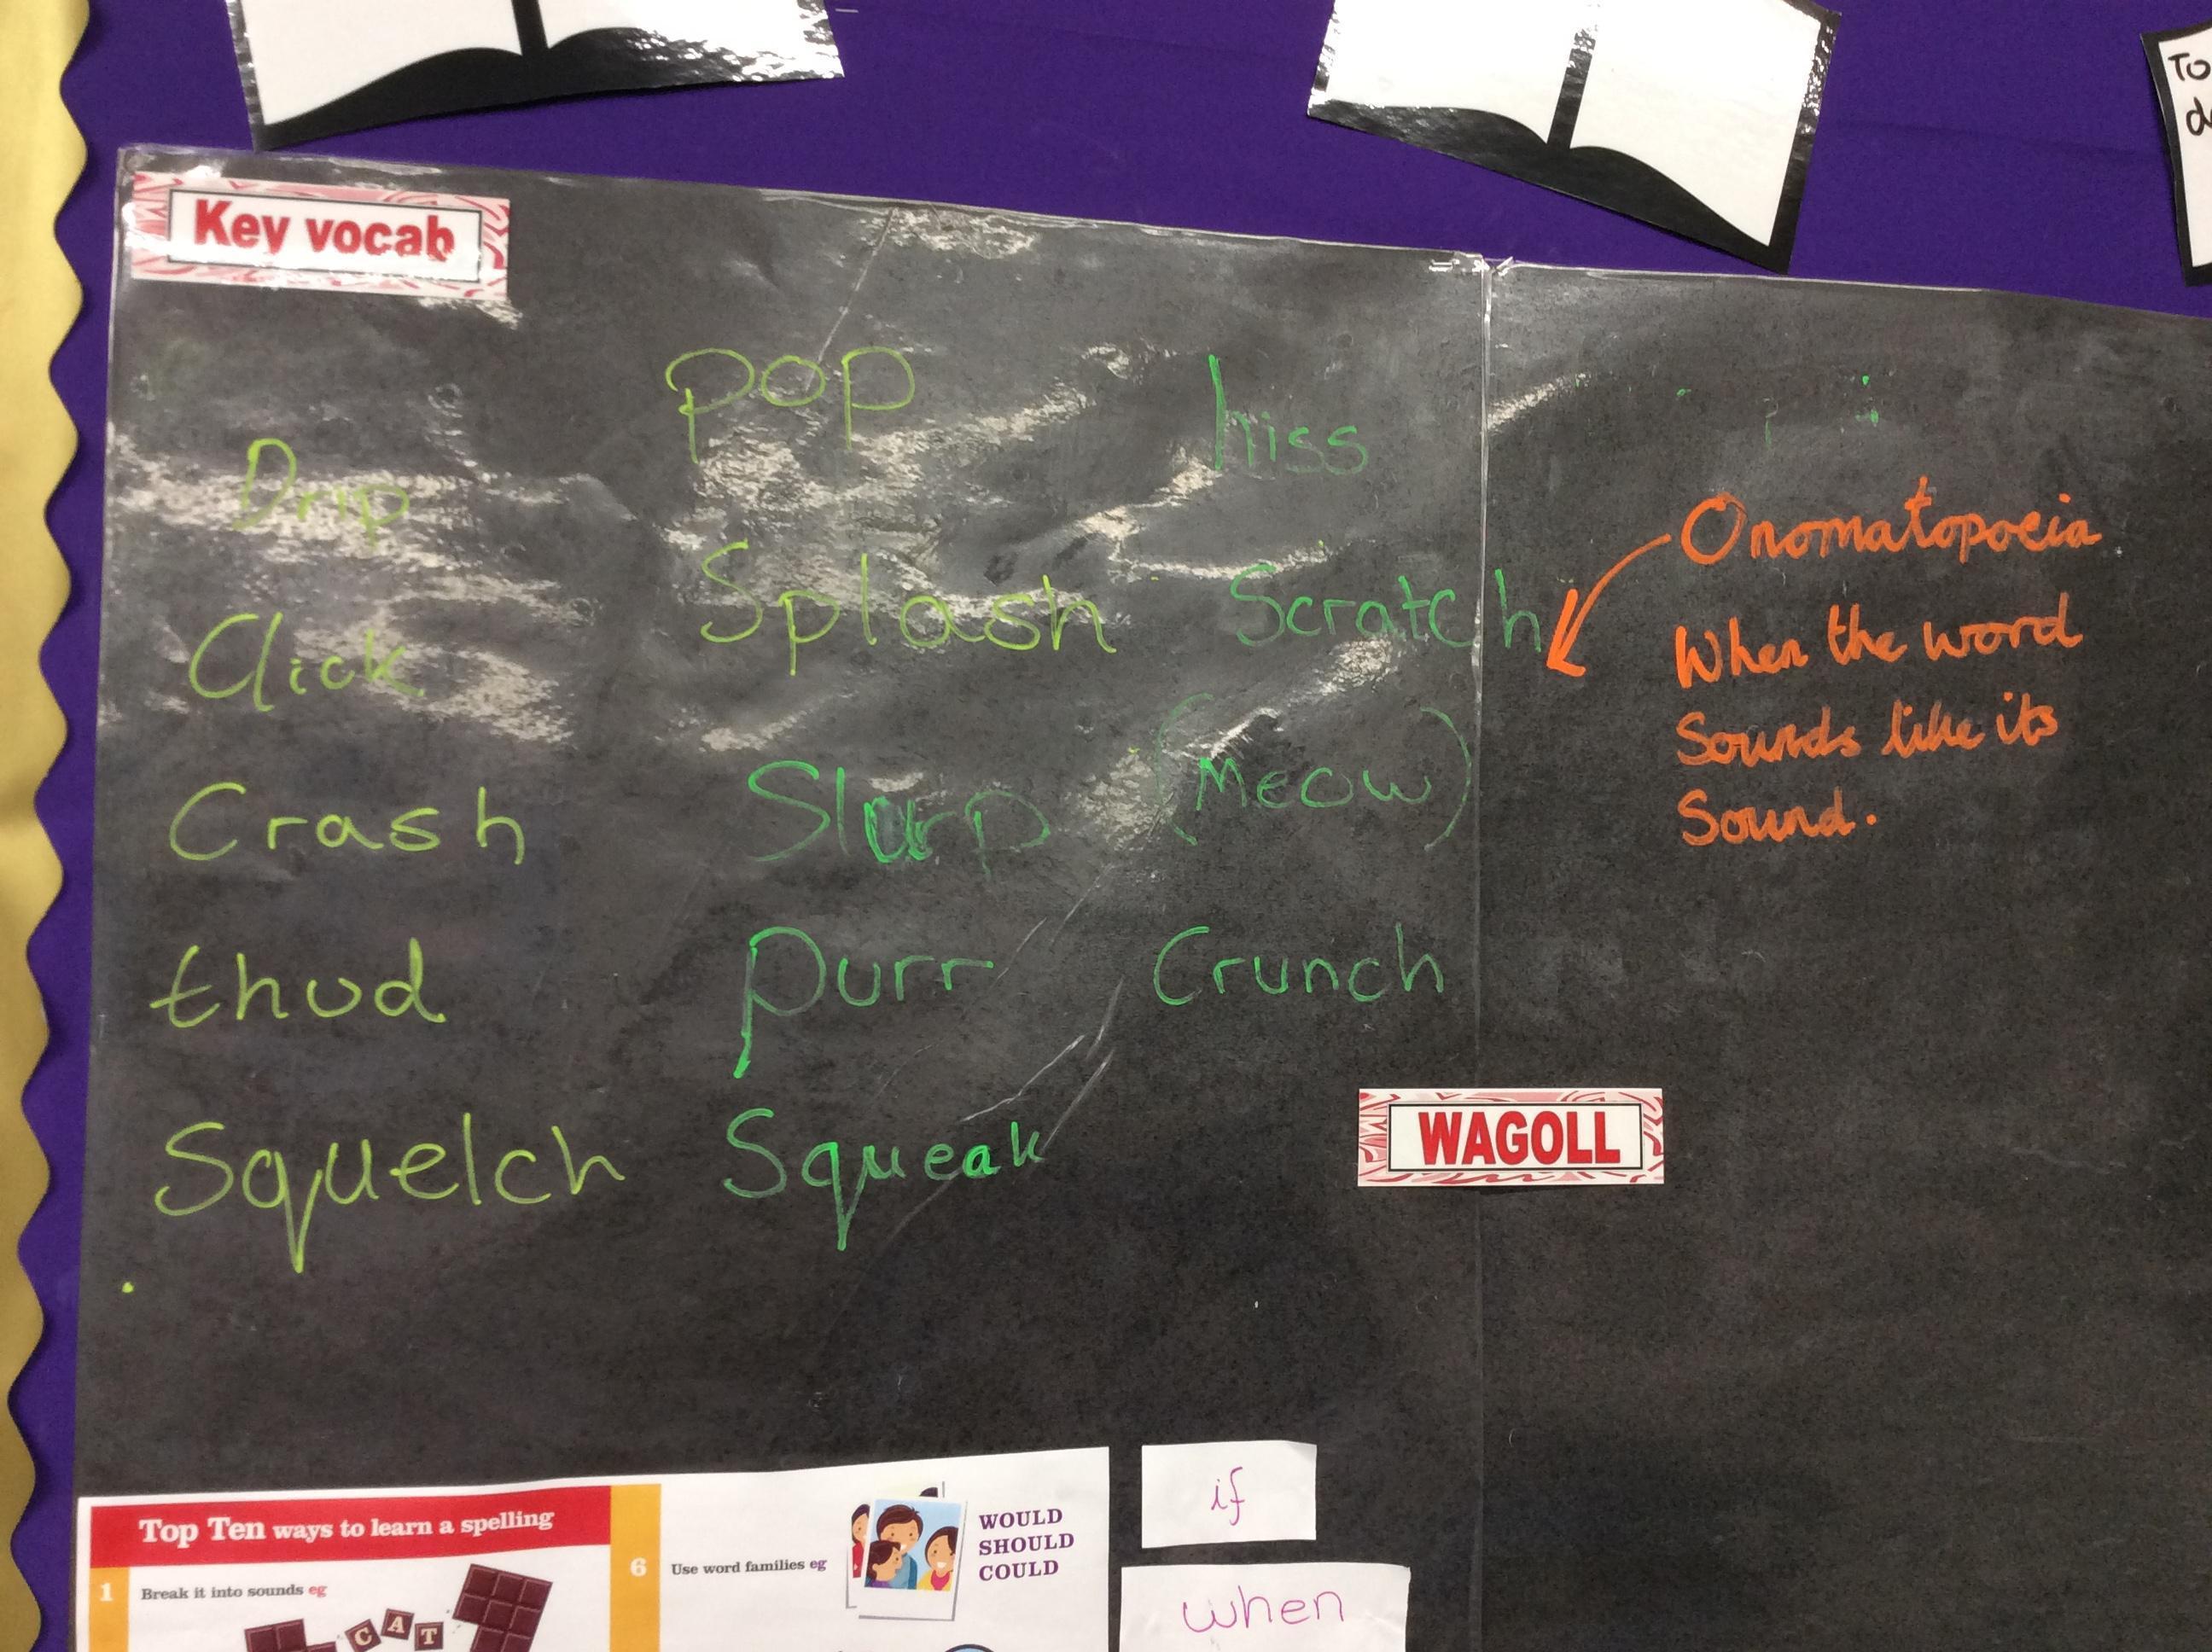 To
Key vocab
Drip
Click
Crash
thud
Squelch
pop
Splash
Slurp
purr
Squeak
hiss
Scratch
(Meow)
Crunch
Onomatopoeia
When the word
Sounds like its
Sound.
WAGOLL
Top Ten ways to learn a spelling
1 Break it into sounds eg
CAT
6 Use word families eg
WOULD
SHOULD
COULD
if
when